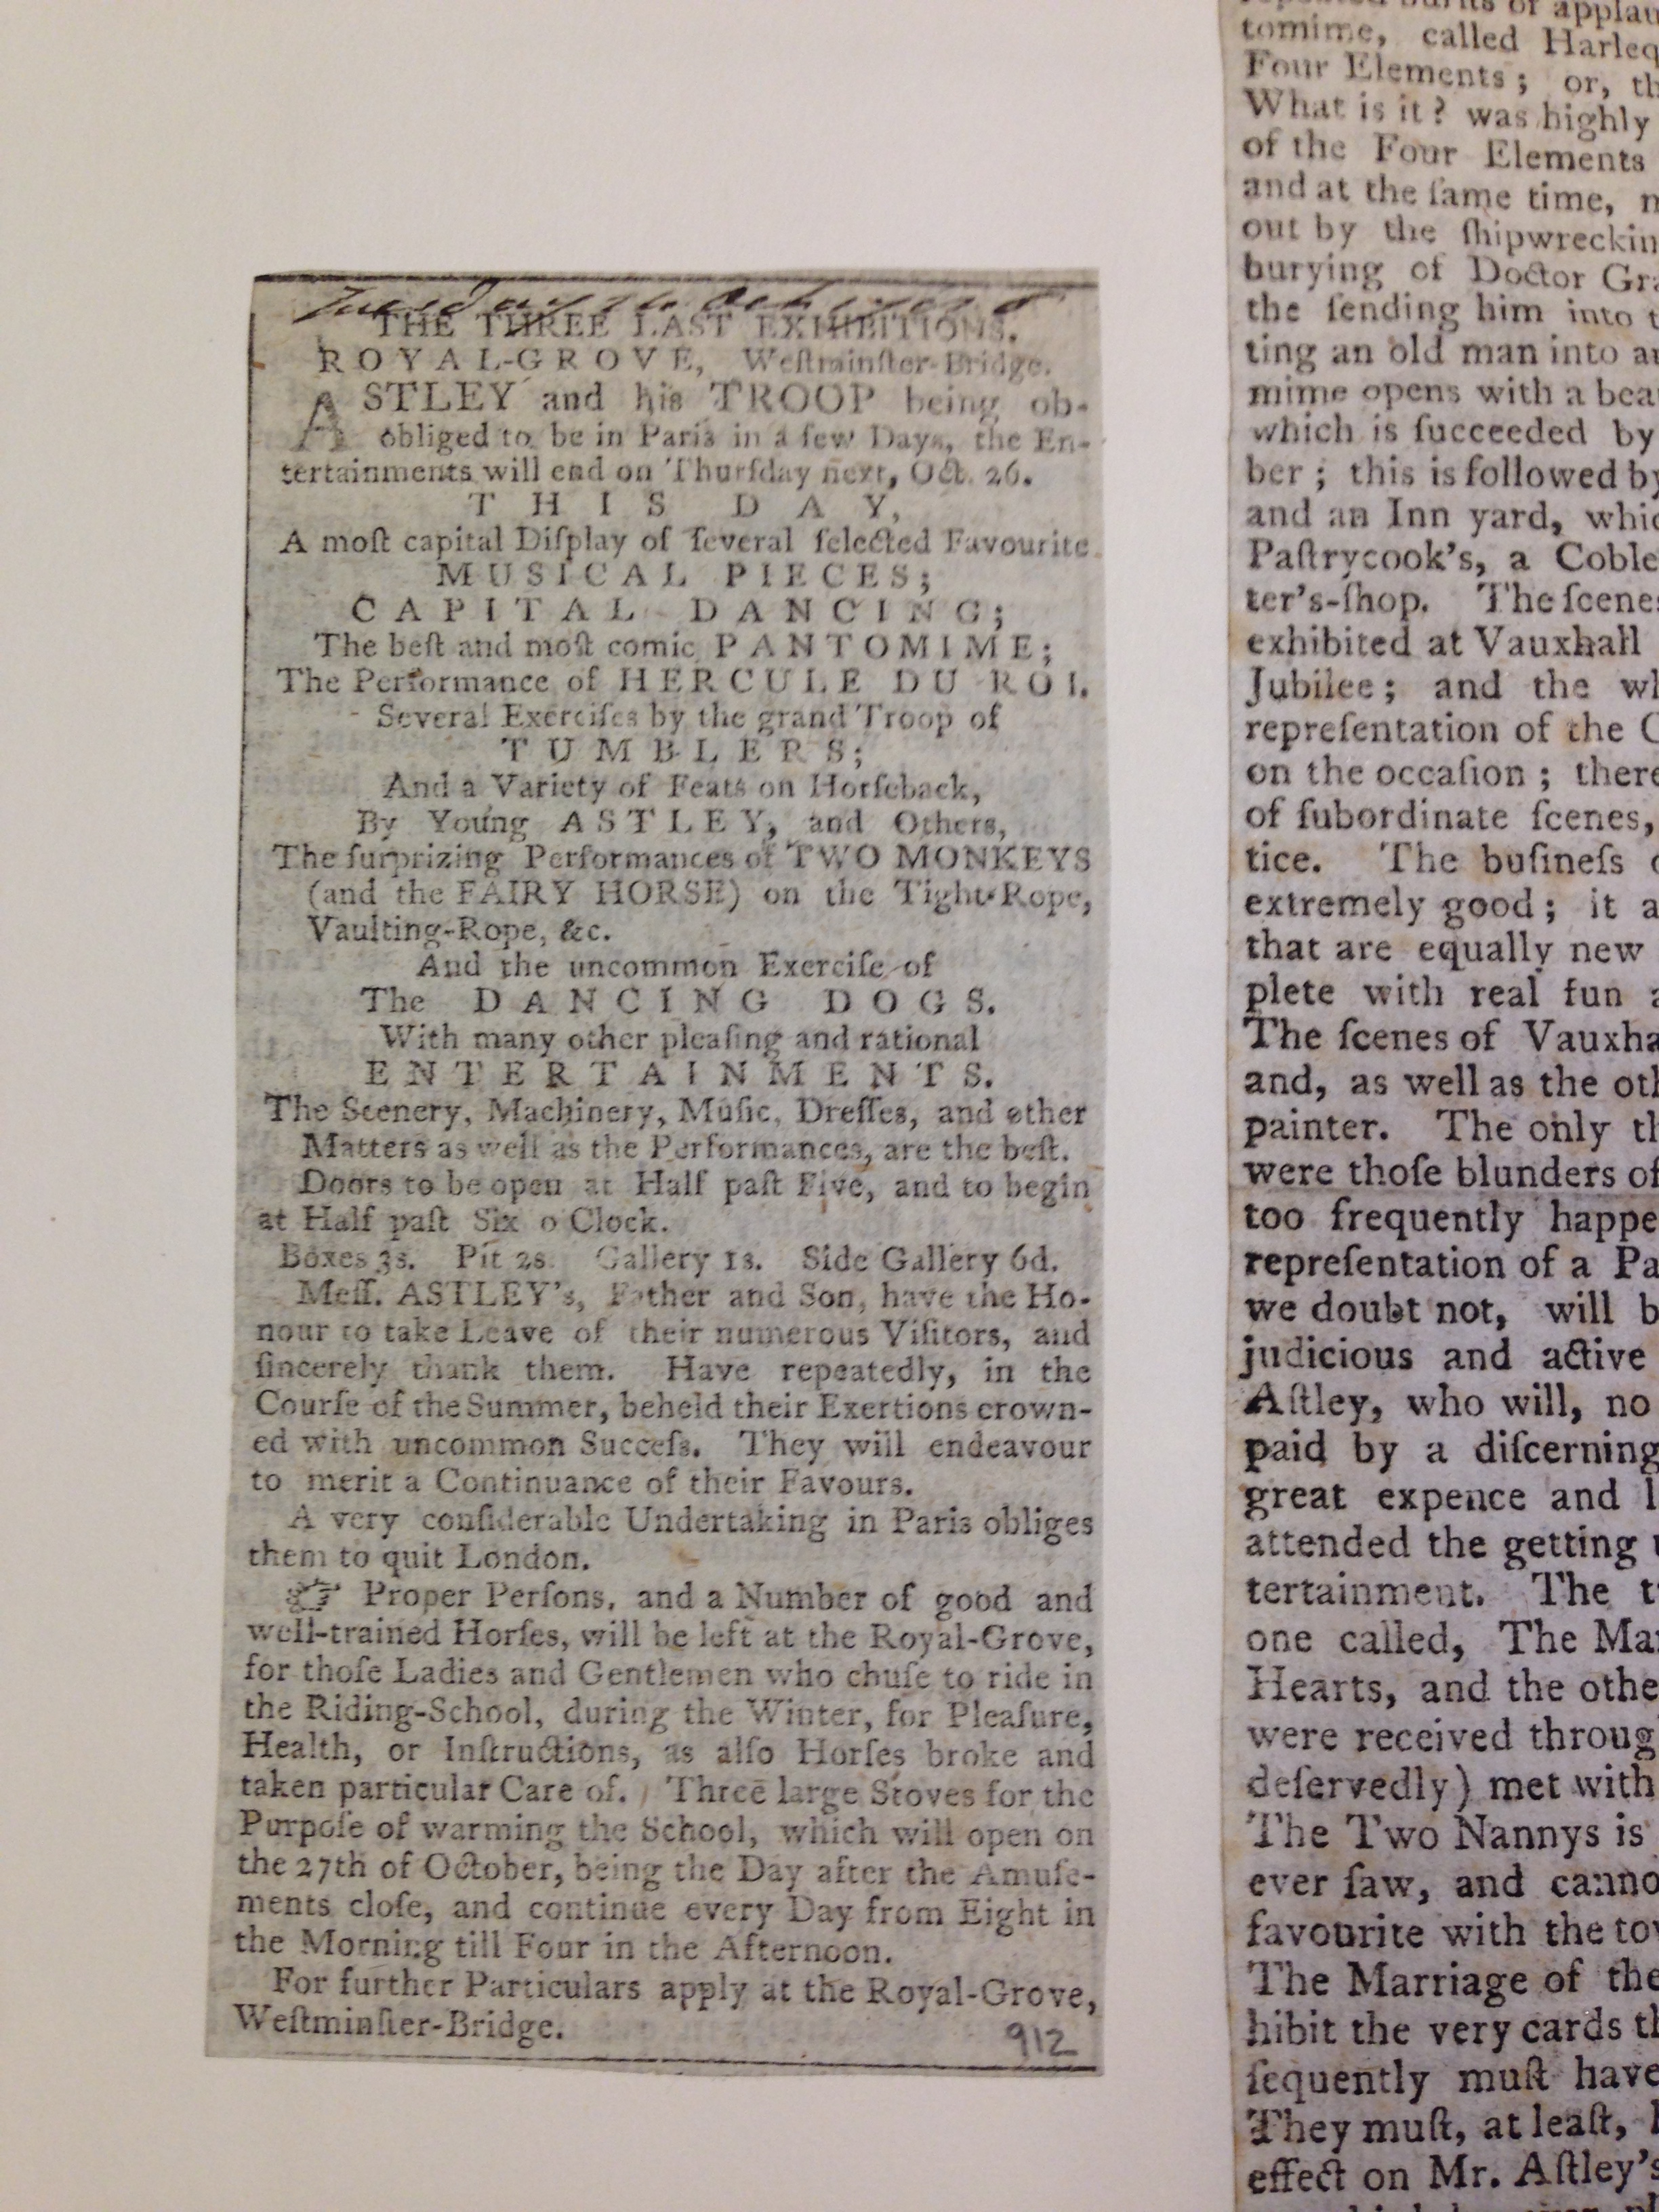 THE THREE LAST EXHIBITIONS.
ROYAL-GROVE, Weſtminſter-Bridge.
ASTLEY and his TROOP being ob-
obliged to be in Paris in a few Days, the En-
tertainments will end on Thurſday next, Oct. 26.
THIS DAY,
A moſt capital Diſplay of ſeveral ſelected Favourite
MUSICAL PIECES;
CAPITAL DANCING;
The beſt and moſt comic PANTOMIME;
The Performance of HERCULE DU ROI.
Several Exerciſes by the grand Troop of
TUMBLERS;
And a Variety of Feats on Horſeback,
By Young ASTLEY, and Others,
The ſurprizing Performances of TWO MONKEYS
(and the FAIRY HORSE) on the Tight-Rope,
Vaulting-Rope, &c.
And the uncommon Exerciſe of
The DANCING DOGS.
With many other pleaſing and rational
ENTERTAINMENTS.
The Scenery, Machinery, Muſic, Dreſſes, and other
Matters as well as the Performances, are the beſt.
Doors to be open at Half paſt Five, and to begin
at Half paſt Six o Clock.
Boxes 3s. Pit 2s. Gallery 1s. Side Gallery 6d.
Meſſ. ASTLEY's, Father and Son, have the Ho-
nour to take Leave of their numerous Viſitors, and
ſincerely thank them. Have repeatedly, in the
Courſe of the Summer, beheld their Exertions crown-
ed with uncommon Succeſs. They will endeavour
to merit a Continuance of their Favours.
A very conſiderable Undertaking in Paris obliges
them to quit London.
☞ Proper Perſons, and a Number of good and
well-trained Horſes, will be left at the Royal-Grove,
for thoſe Ladies and Gentlemen who chuſe to ride in
the Riding-School, during the Winter, for Pleaſure,
Health, or Inſtructions, as alſo Horſes broke and
taken particular Care of. Three large Stoves for the
Purpoſe of warming the School, which will open on
the 27th of October, being the Day after the Amuſe-
ments cloſe, and continue every Day from Eight in
the Morning till Four in the Afternoon.
For further Particulars apply at the Royal-Grove,
Weſtminſter-Bridge.
912
of applau
tomime, called Harleq
Four Elements; or, th
What is it? was highly
of the Four Elements
and at the ſame time, m
out by the ſhipwreckin
burying of Doctor Gra
the ſending him into t
ting an old man into an
mime opens with a bea
which is ſucceeded by
ber; this is followed by
and an Inn yard, whic
Paſtrycook's, a Coble
ter's-ſhop. The ſcenes
exhibited at Vauxhall
Jubilee; and the wh
repreſentation of the C
on the occaſion; there
of ſubordinate ſcenes,
tice. The buſineſs o
extremely good; it a
that are equally new
plete with real fun a
The ſcenes of Vauxha
and, as well as the oth
painter. The only th
were thoſe blunders of
too frequently happe
repreſentation of a Pa
we doubt not, will b
judicious and active
Aſtley, who will, no
paid by a diſcerning
great expence and l
attended the getting u
tertainment. The t
one called, The Mar
Hearts, and the othe
were received throug
deſervedly) met with
The Two Nannys is
ever ſaw, and canno
favourite with the tow
The Marriage of the
hibit the very cards th
ſequently muſt have
They muſt, at leaſt,
effect on Mr. Aſtley's